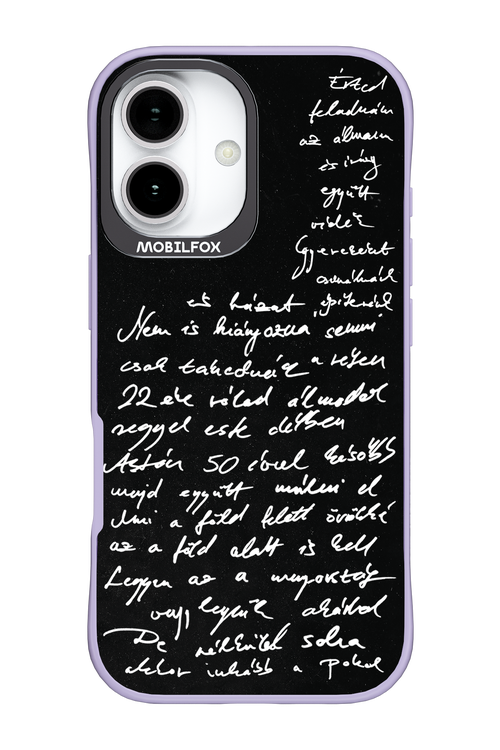 MOBILFOX
Érted
feladnám
az álmaim
és így
együtt
vidék
Gyereket
csinálnánk
és házat építenénk
Nem is hiányozna semmi
csak takednánk a réten
22 éve rólad álmodok
reggel este délben
Aztán 50 évvel később
majd együtt múlni el
Ami a föld felett örökké
az a föld alatt is kell
Legyen az a mennyország
vagy legyünk akárhol
De nélküled soha
akkor inkább a Pokol